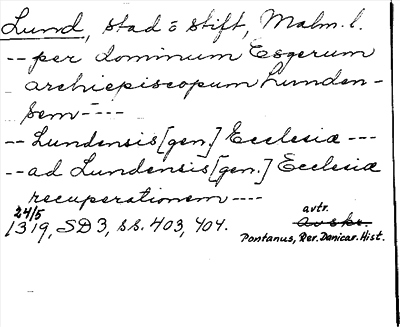 Lund, stad o stift, Malm. l.
-- per dominum Esgerum
archiepiscopum Lunden-
sem ----
-- Lundensis [gen.] Ecclesiæ ---
-- ad Lundensis [gen.] Ecclesiæ
recuperationem ----
24/5 avtr.
1319, SD 3, ss. 403, 404.
Pontanus, Rer. Danicar. Hist.